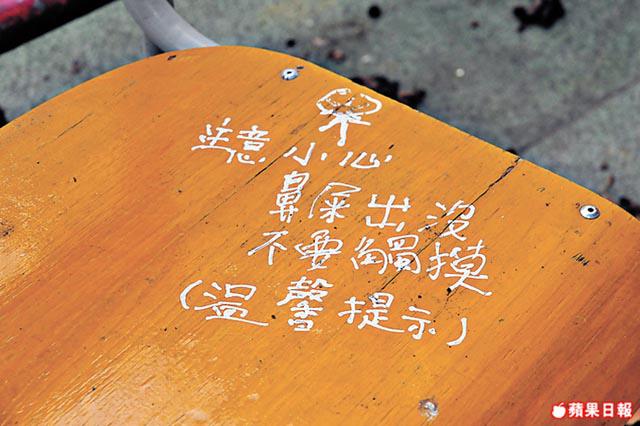 注意小心
鼻屎出沒
不要觸摸
(溫馨提示)
蘋果日報